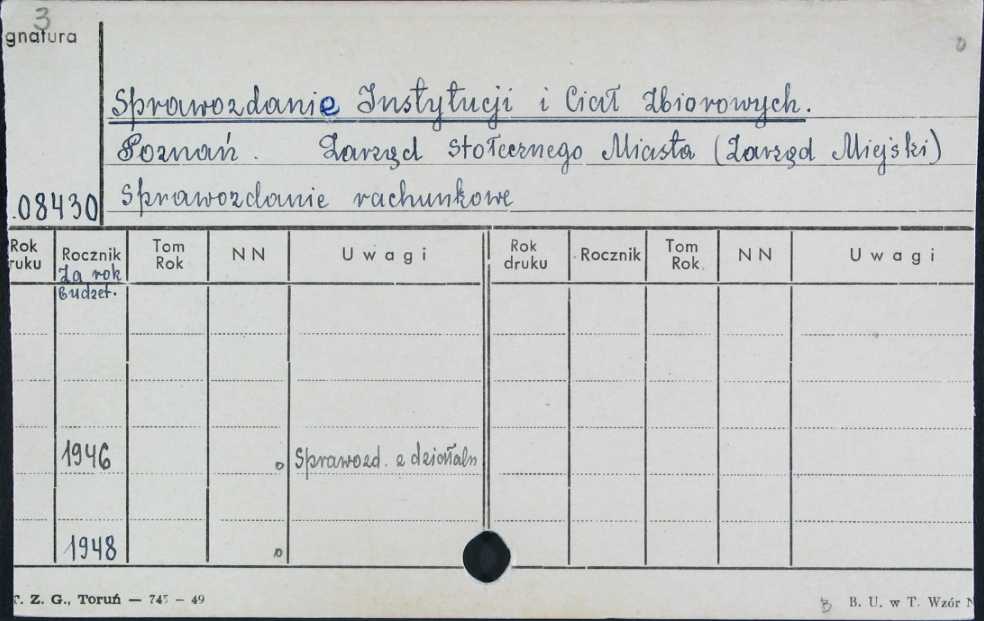 3
gnatura
o
Sprawozdanie Instytucji i Ciał Zbiorowych.
Poznań. Zarząd Stołecznego Miasta (Zarząd Miejski)
.08430 Sprawozdanie rachunkowe
Rok ruku Rocznik Tom Rok NN Uwagi Rok druku Rocznik Tom Rok NN Uwagi
Za rok
Budżet.
1946 o Sprawozd. z działaln
1948 o
T. Z. G., Toruń — 745 — 49
B B. U. w T. Wzór N